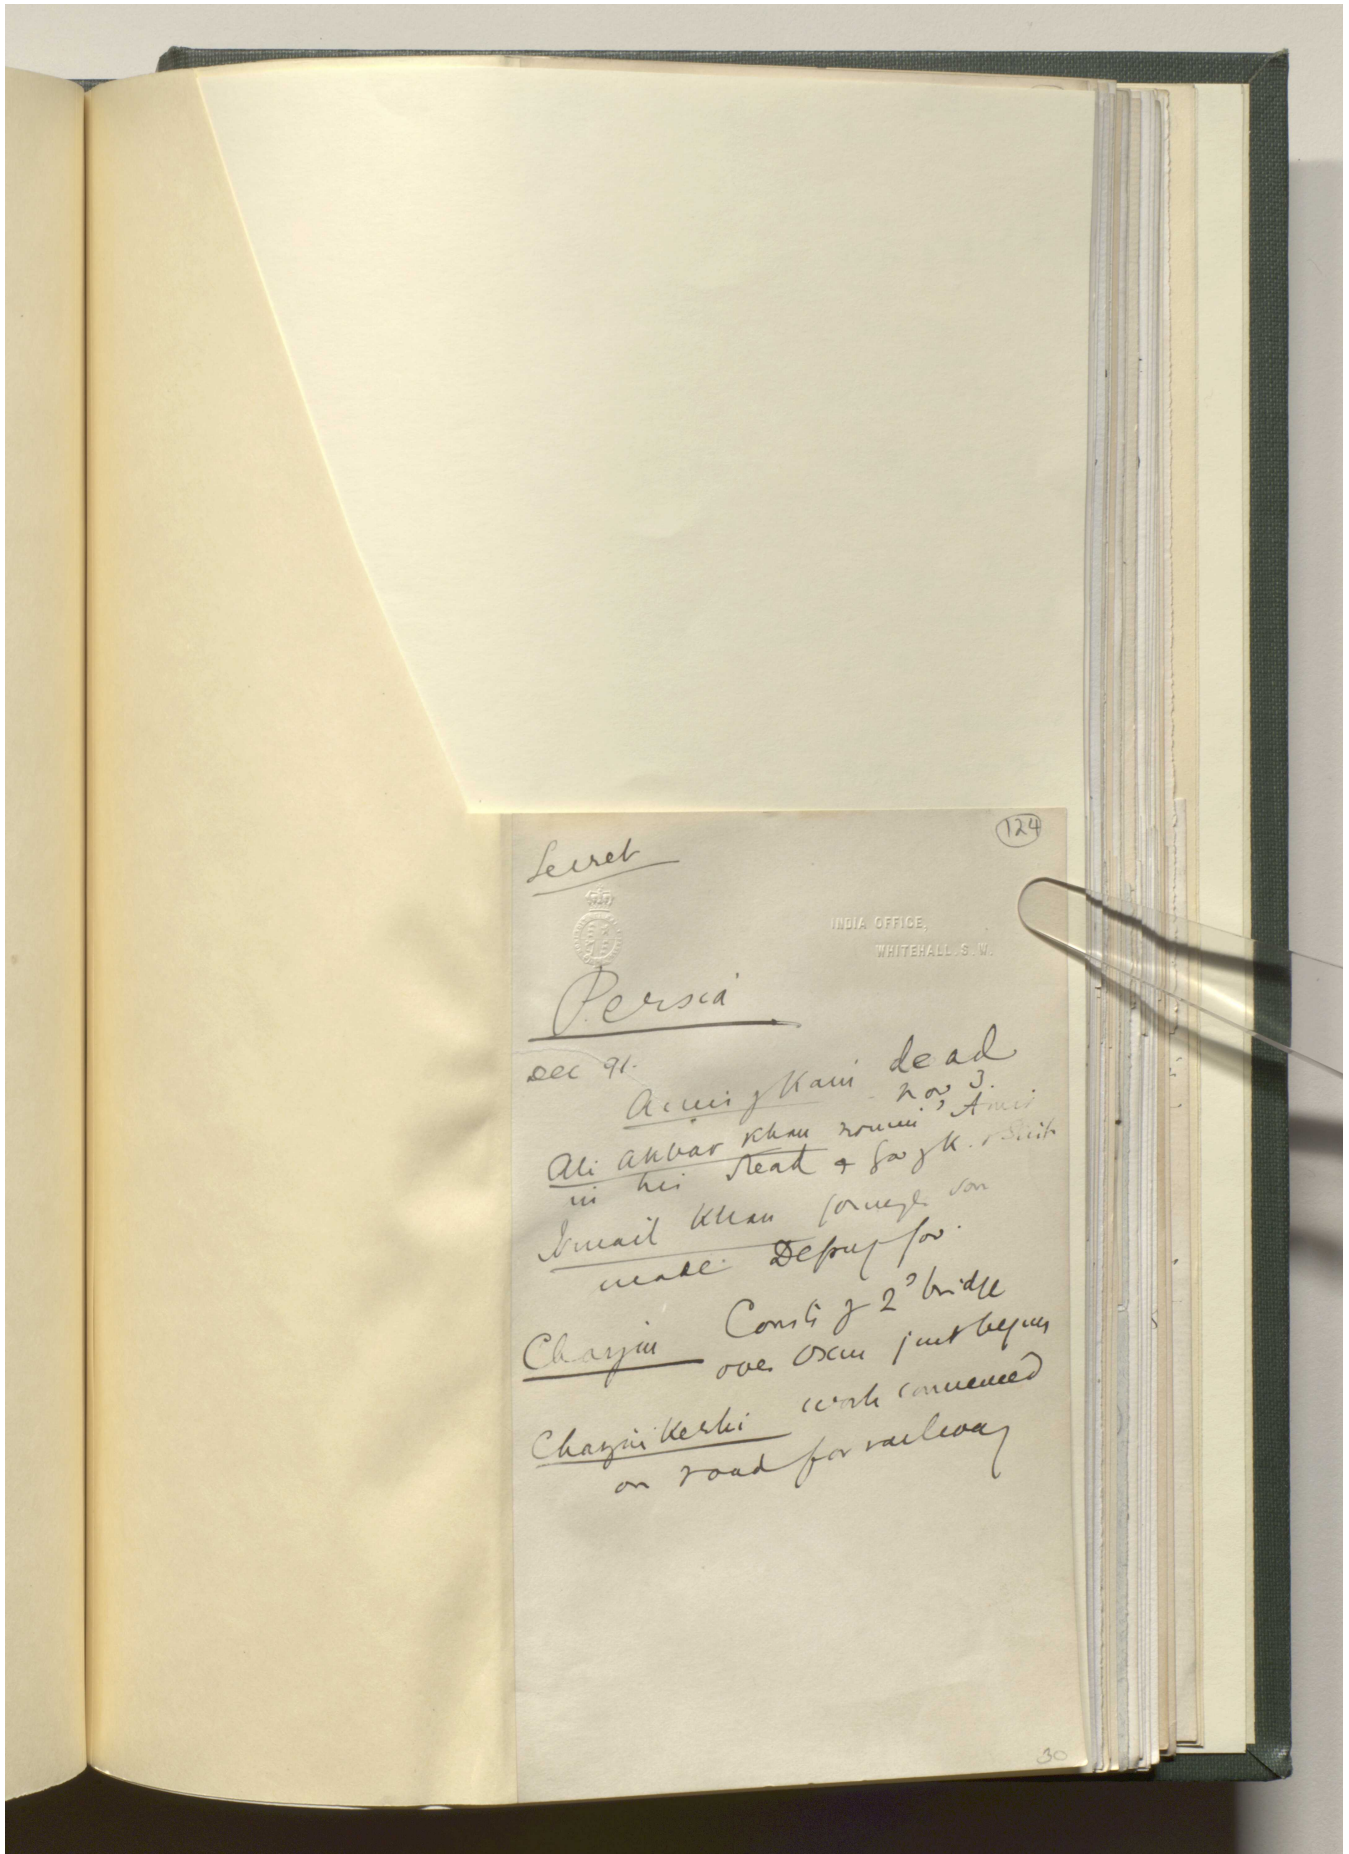 124
Secret
INDIA OFFICE,
WHITEHALL. S. W.
Persia
Dec 91.
Amir of Kain dead
Nov 3.
Ali Akbar Khan Amir
in his stead & Gov of K. &
Ismail Khan son
made Deputy Gov.
Charjui Consts of 2d bridge
over Oxus just begun
Charjui Kerki work commenced
on road for railway
30